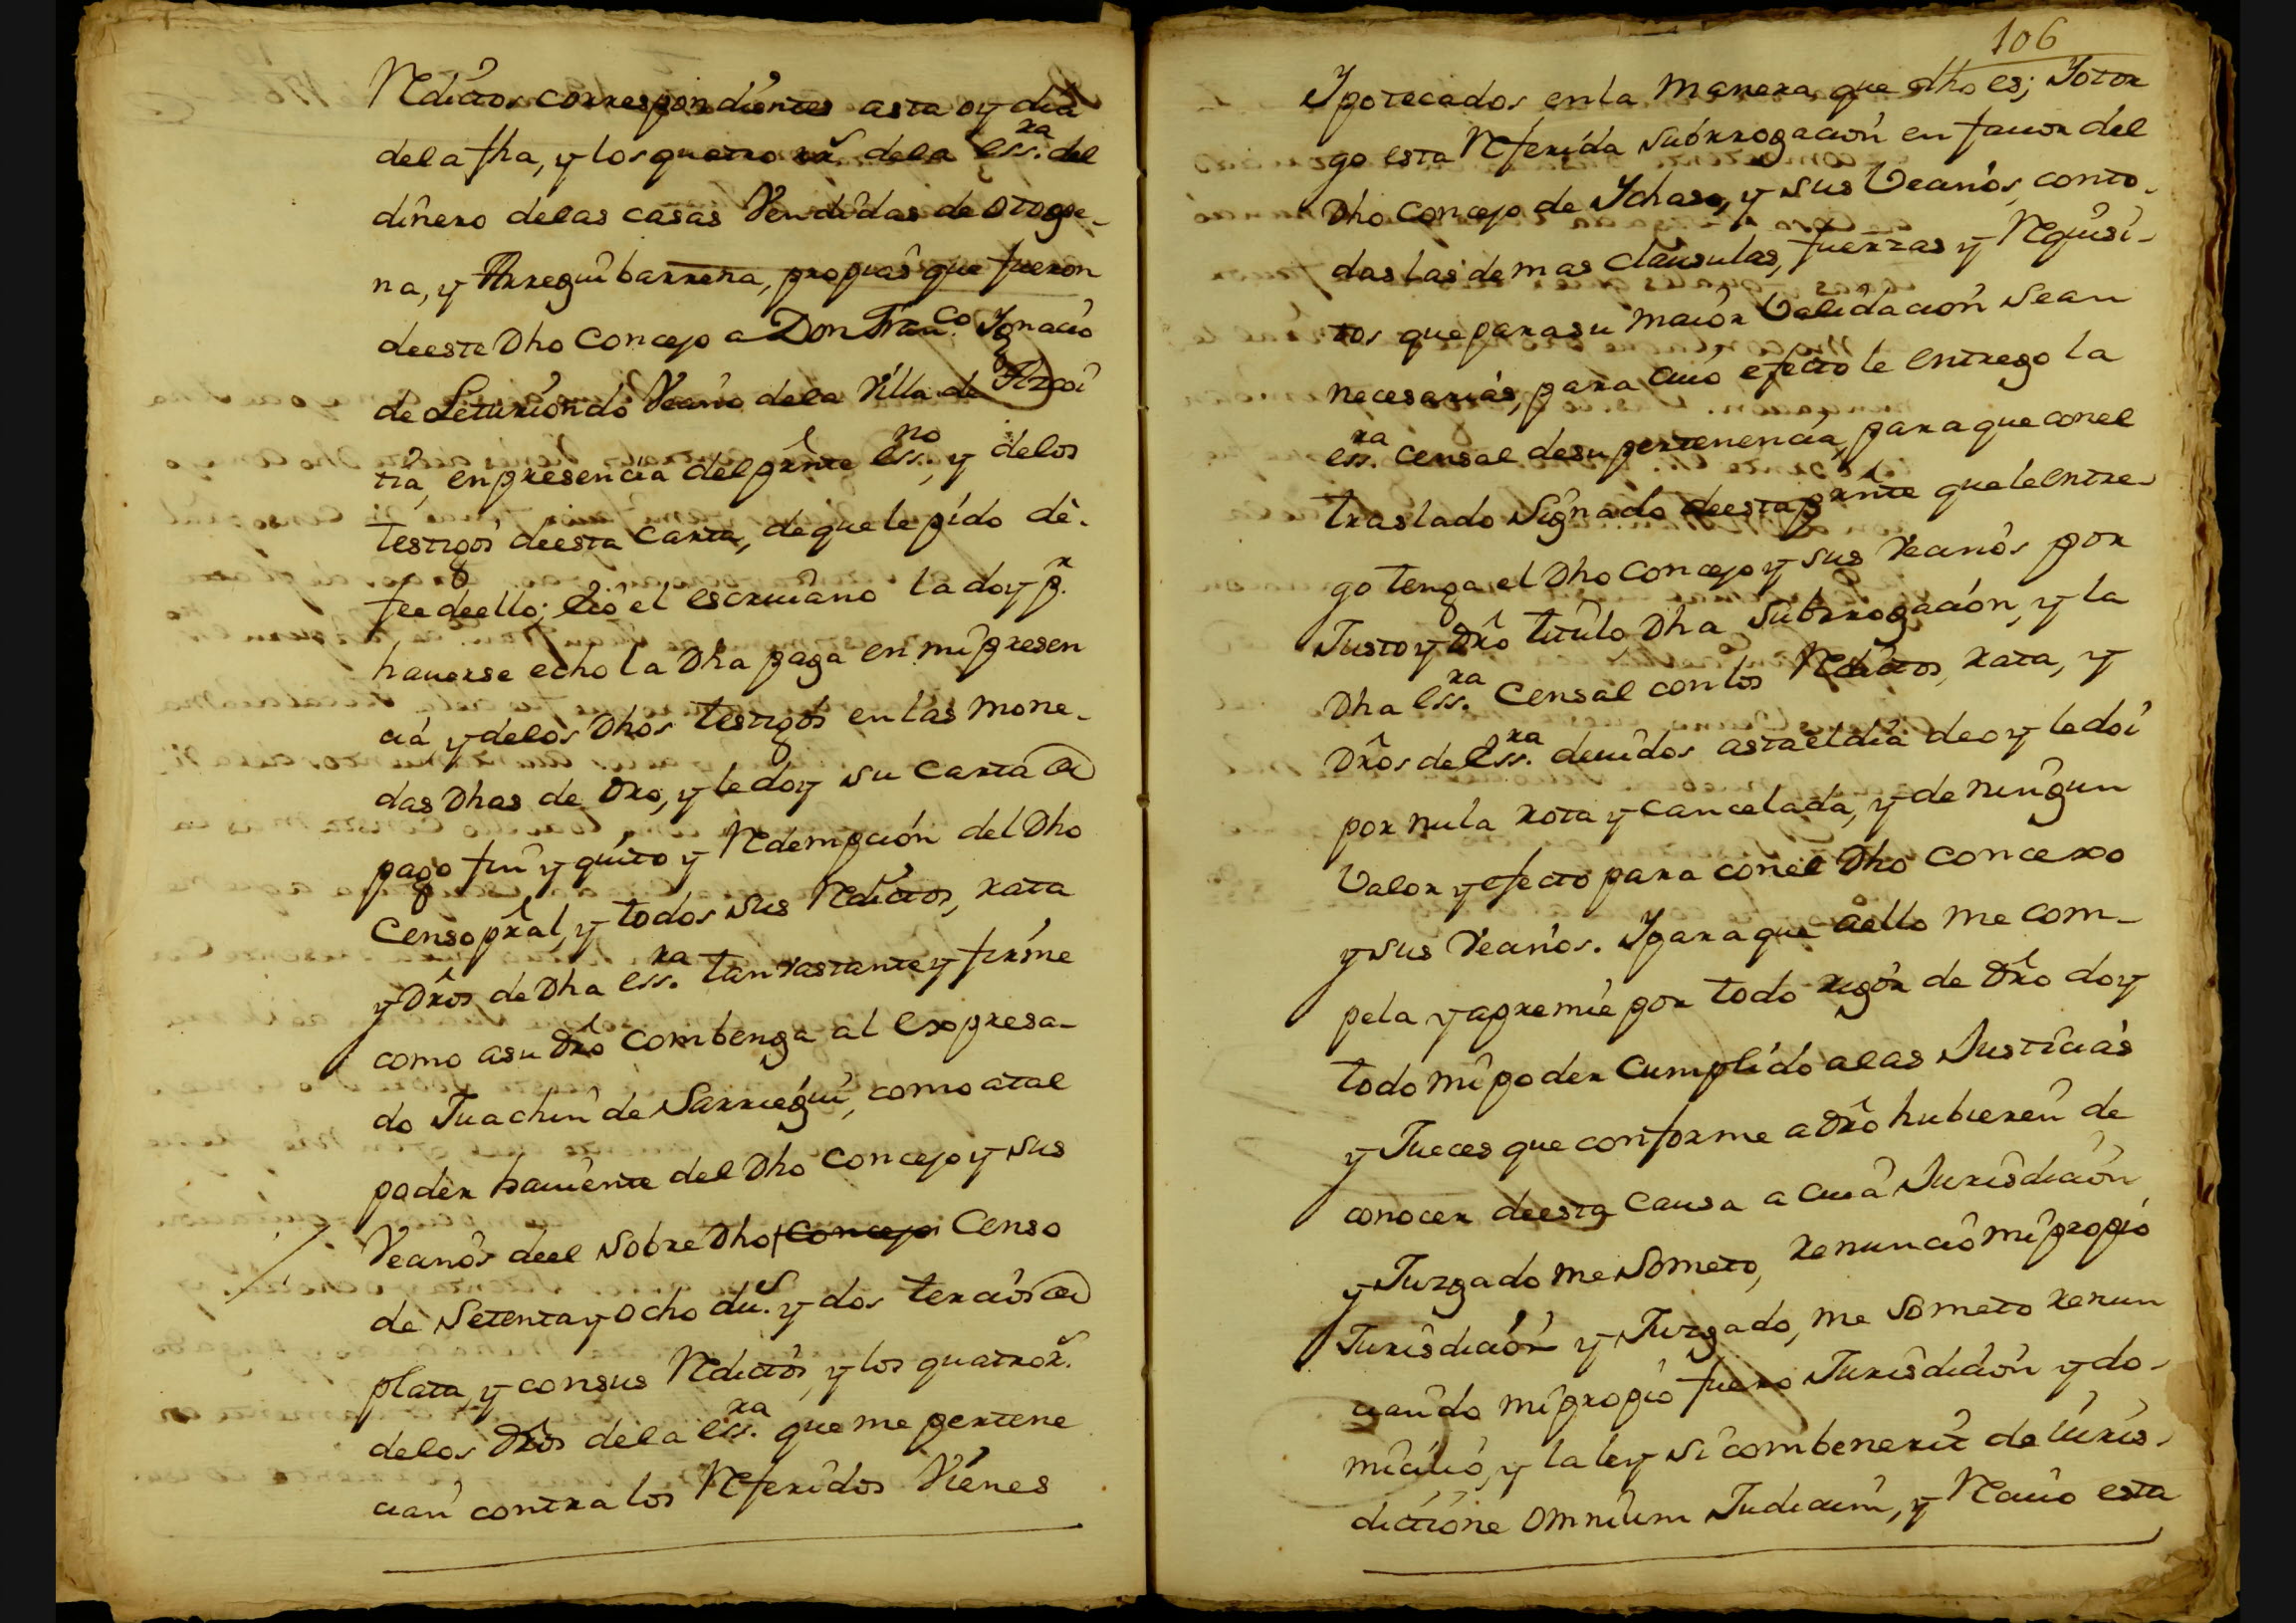 Reditos correspondientes asta oy dia
dela fha, y los quatro rs. dela ess.ra del
dinero delas casas Vendidas de Otogoe-
na, y Arregui barrena, propias que fueron
deeste Dho Concejo a Don Fran.co Ignacio
de Leturiondo Vecino dela Villa de Azcoi
tia, en presencia del prnte ess.no, y delos
testigos deesta Carta, de que le pido dè.
fee deello; E io el escriuano la doy p.r
hauerse echo la Dha paga en mi presen
cia y delos Dhos testigos en las mone-
das Dhas de Dro, y le doy su Carta de
pago fin y quito y Redempcion del Dho
Censo pral, y todos sus Reditos, rata
y Dros de Dha ess.ra tan vastante y firme
como asu dro combenga al Expresa-
do Juachin de Sarriegui, como atal
poder hauiente del Dho Concejo y sus
Vecinos deel sobre Dho Concejo Censo
de Setenta y ocho du.s y dos tercios de
plata, y con sus Reditos, y los quatro rs.
delos dros dela ess.ra que me pertene
cian contra los Referidos Vienes
106
Ypotecados en la manera que dho es; Y otor
go esta Referida Subrrogacion en fauor del
Dho Concejo de Ichaso, y sus Vecinos, con to-
das las demas clausulas, fuerzas y Requisi-
tos que para su maior Validacion sean
necesarias, para cuio efecto le entrego la
ess.ra Censal de su pertenencia, para que con el
traslado Signado deesta prnte que le entre-
go tenga el Dho Concejo y sus Vecinos por
Justo y dro titulo, Dha Subrrogacion, y la
Dha ess.ra Censal con los Reditos, rata, y
Dros de Ess.ra deuidos asta el dia de oy le doi
por nula rota y cancelada, y de ningun
Valor y efecto para con el Dho Concexo
y sus Vecinos. Y para que aello me com-
pela y apremie por todo rigor de dro doy
todo mi poder Cumplido alas Justicias
y Jueces que conforme a dro hubieren de
conocer deesta Causa a cuia Jurisdicion
y Juzgado me Someto, renuncio mi propio
Jurisdicion y Juzgado, me Someto renun
ciando mi propio fuero Jurisdicion y do-
micilio, y la ley si combenerit de iuris-
dictione omnium Judicum, y Reciuo esta